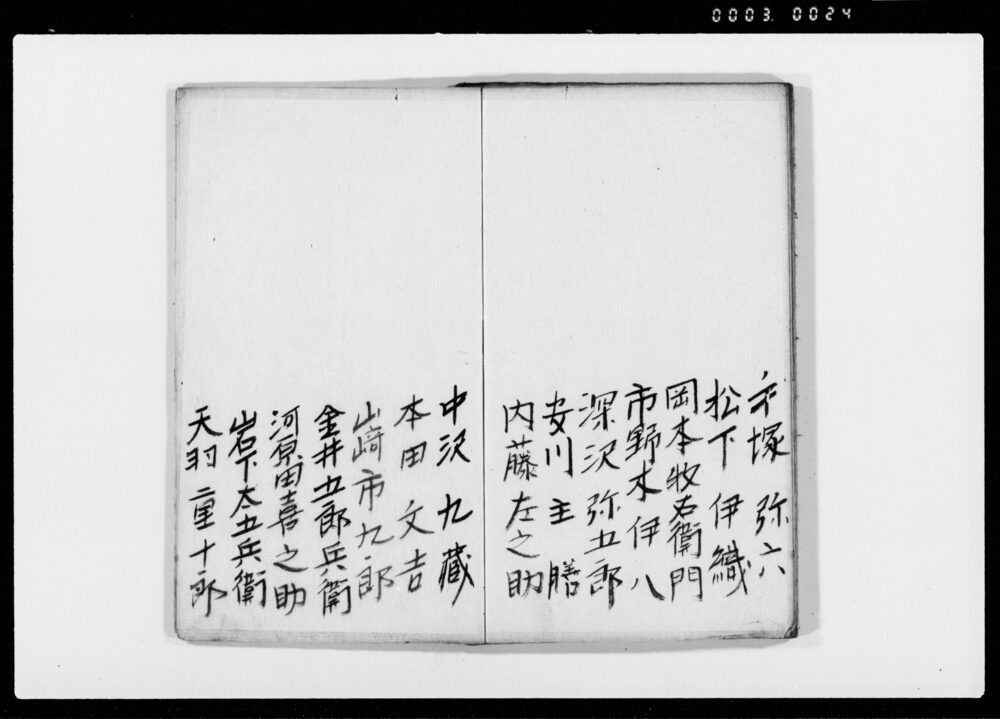 0003. 0024
塚 弥六
松下 伊織
岡本牧右衛門
市野木伊八
深沢弥五郎
安川主膳
内藤左之助
中沢九蔵
本田文吉
山崎市九郎
金井五郎兵衛
河原田喜之助
岩下太五兵衛
天羽 十郎